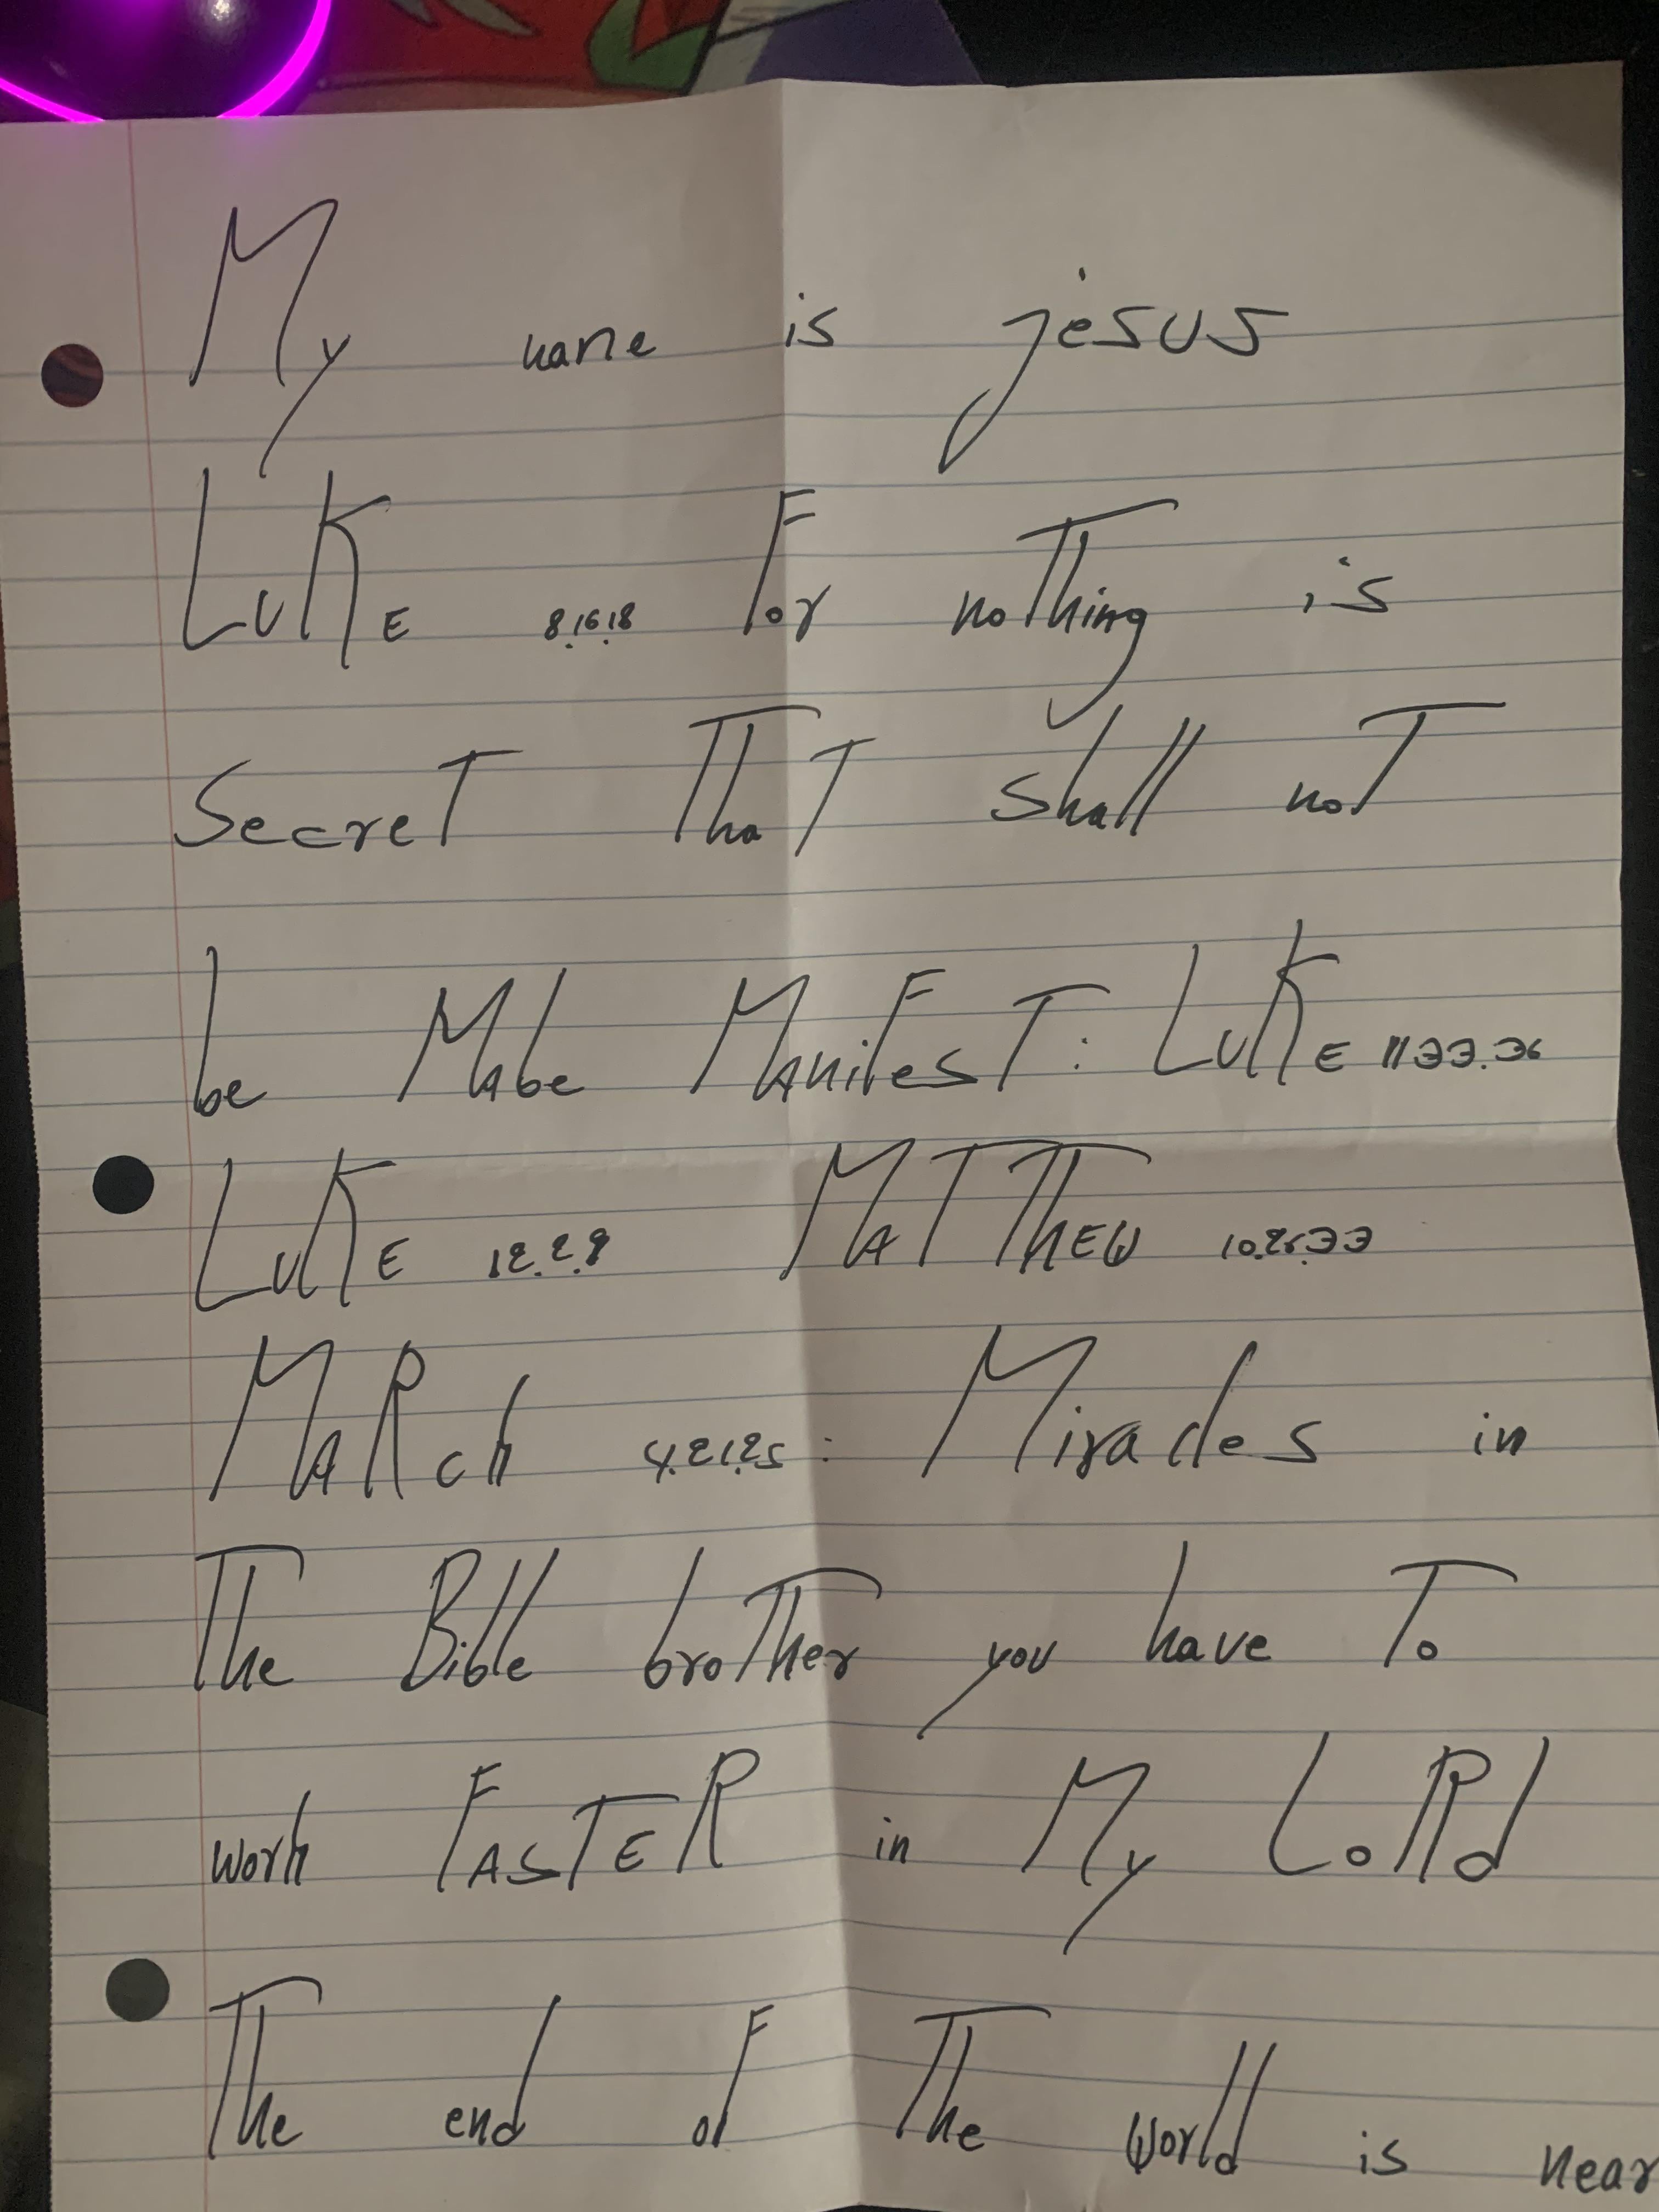 My name is jesus
LuKE 8.16.18 For noThing is
SecreT ThaT shall noT
be MAbe MAnifesT: LuKE 11 33.36
LuKE 12.2.9 MATThEW 10.26.33
MARch 4.21.25: Miracles in
The Bible broTher you have To
work FASTER in My LoRd
The end oF The World is near